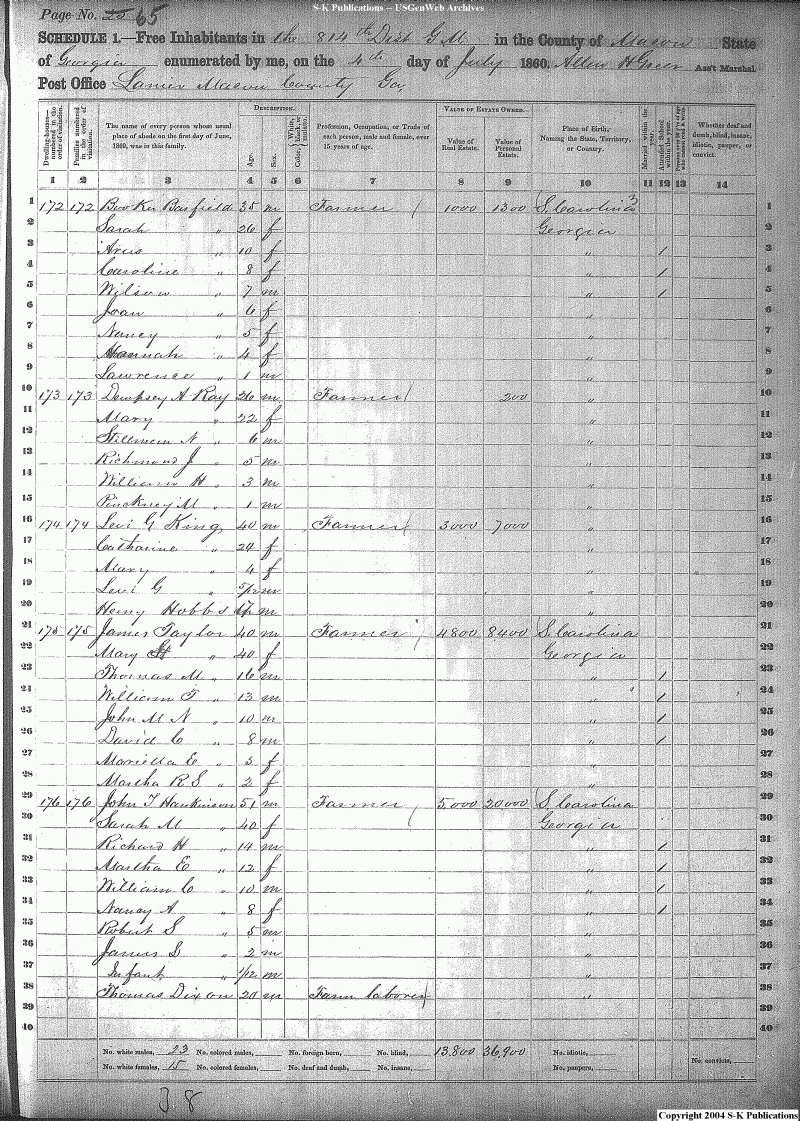 S-K Publications -- USGenWeb Archives
Page No. 65
SCHEDULE 1.—Free Inhabitants in the 814th Dist G M in the County of Macon State
of Georgia enumerated by me, on the 4th day of July 1860. Allen H Greer Ass't Marshal.
Post Office Lanier Macon County Ga,
Dwelling-houses—numbered in the order of visitation.
Families numbered in the order of visitation.
The name of every person whose usual place of abode on the first day of June, 1860, was in this family.
DESCRIPTION.
Age.
Sex.
Color, White, black, or mulatto.
Profession, Occupation, or Trade of each person, male and female, over 15 years of age.
VALUE OF ESTATE OWNED.
Value of Real Estate.
Value of Personal Estate.
Place of Birth, Naming the State, Territory, or Country.
Married within the year.
Attended School within the year.
Whether deaf and dumb, blind, insane, idiotic, pauper, or convict.
1 2 3 4 5 6 7 8 9 10 11 12 13 14
1 172 172 Booker Barfield 35 m Farmer 1000 1300 S. Carolina 1
2 Sarah " 26 f Georgia 2
3 " 10 f " / 3
4 Caroline " 8 f " / 4
5 Wilson " 7 m " / 5
6 Joan " 6 f " 6
7 Nancy " 5 f " 7
8 Hannah " 4 f " 8
9 Lawrence " 1 m " 9
10 173 173 Dempsey A Ray 26 m Farmer 200 " 10
11 Mary " 22 f " 11
12 Stillmon N " 6 m " 12
13 Richmond J " 5 m " 13
14 William H " 3 m " 14
15 Pinckney M " 1 m " 15
16 174 174 Levi G King 40 m Farmer 3000 7000 " 16
17 Catharine " 24 f " 17
18 Mary " 4 f " 18
19 Levi G " 5/12 m " 19
20 Henry Hobbs m " 20
21 175 175 James Taylor 40 m Farmer 4800 8400 S. Carolina 21
22 Mary " 40 f Georgia 22
23 Thomas M " 16 m " / 23
24 William F " 13 m " / 24
25 John M N " 10 m " / 25
26 David C " 8 m " / 26
27 Mariella E " 5 f " 27
28 Martha R S " 2 f " 28
29 176 176 John T Hankinson 51 m Farmer 5,000 20000 S. Carolina 29
30 Sarah M " 40 f Georgia 30
31 Richard H " 14 m " / 31
32 Martha E " 12 f " / 32
33 William C " 10 m " / 33
34 Nancy A " 8 f " / 34
35 Robert S " 5 m " 35
36 James S " 2 m " 36
37 Infant " 1/12 m " 37
38 Thomas Dixon 20 m Farm laborer " 38
39 39
40 40
No. white males, 23 No. colored males, No. foreign born, No. blind, 13.800 36,900 No. idiotic, No. convicts,
No. white females, 15 No. colored females, No. deaf and dumb, No. insane, No. paupers,
38
Copyright 2004 S-K Publications